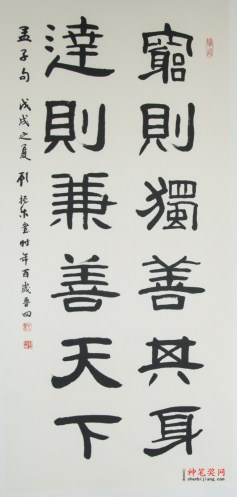 窮則獨善其身
達則兼善天下
孟子句 戊戌之夏
神笔奖网
shenbijiang.com